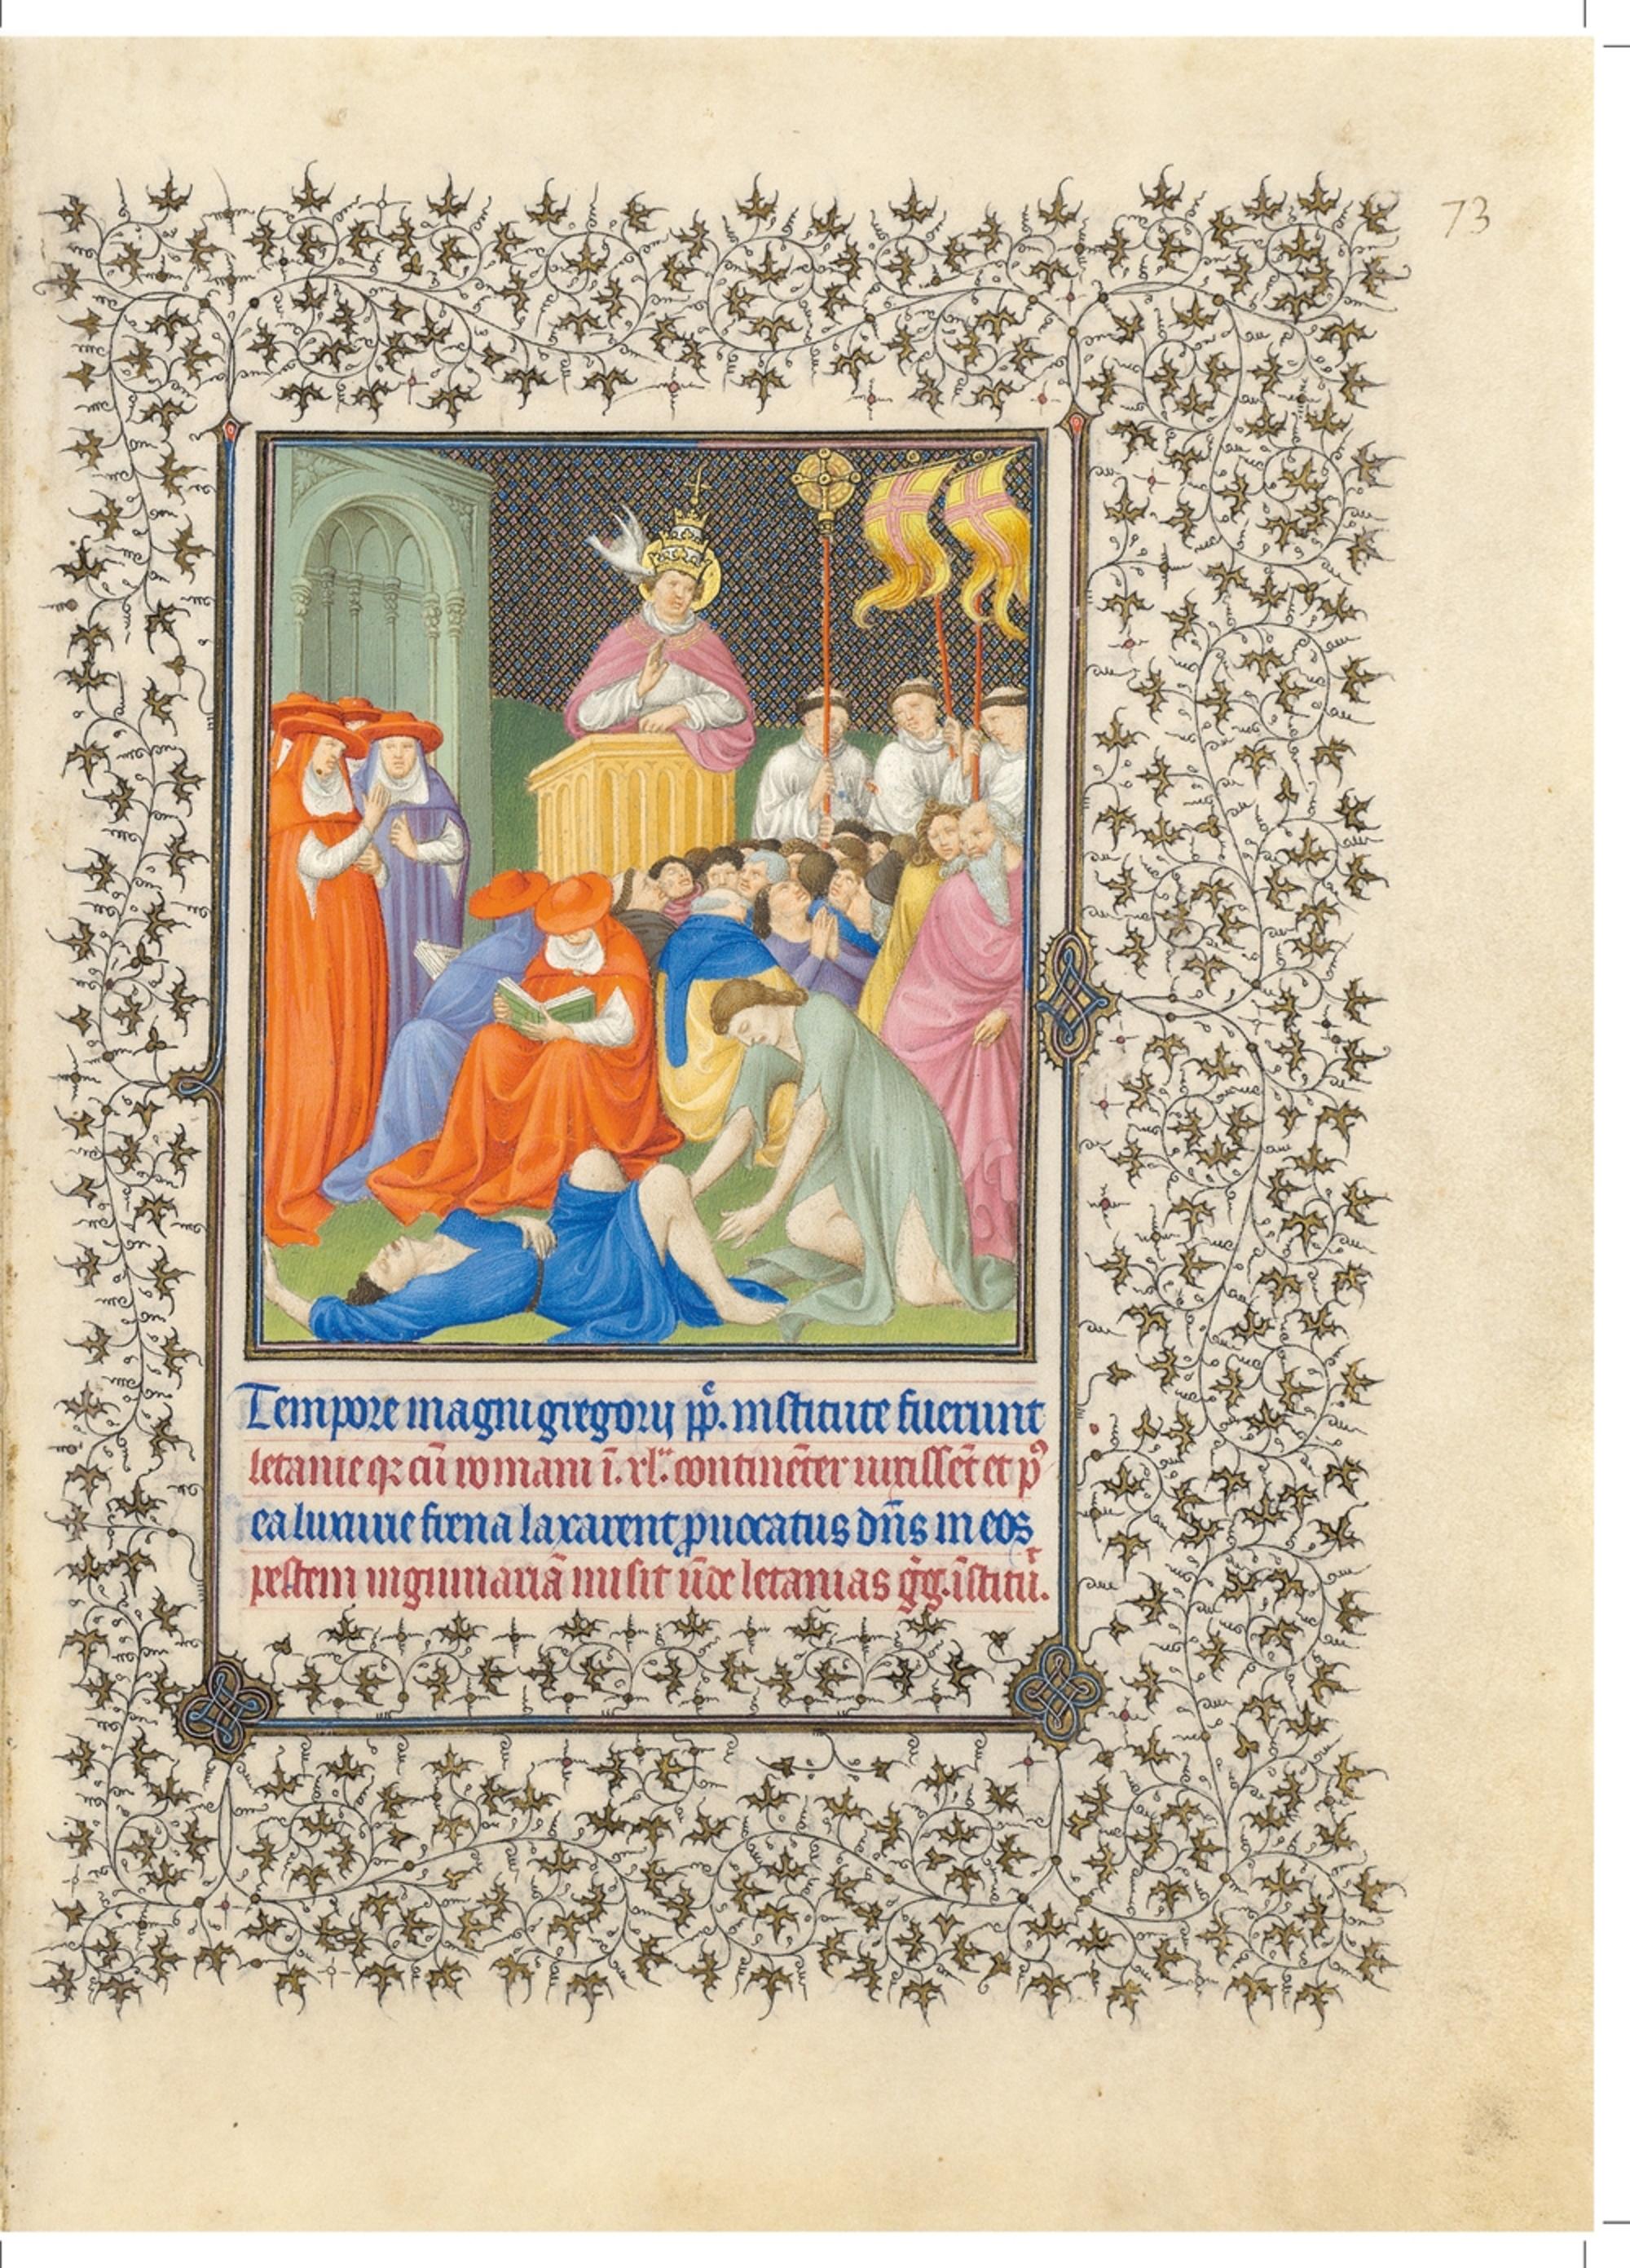 73
Tempore magni gregorij pp̅. institute fuerunt
letanie q; cū romani ī. xl.ª continēter uixissēt et pꝰ
ea luxurie frena laxarent ꝓuocatus dn̄s in eos
pestem inguinariā misit ūde letanias gͥg. īstituͭ.